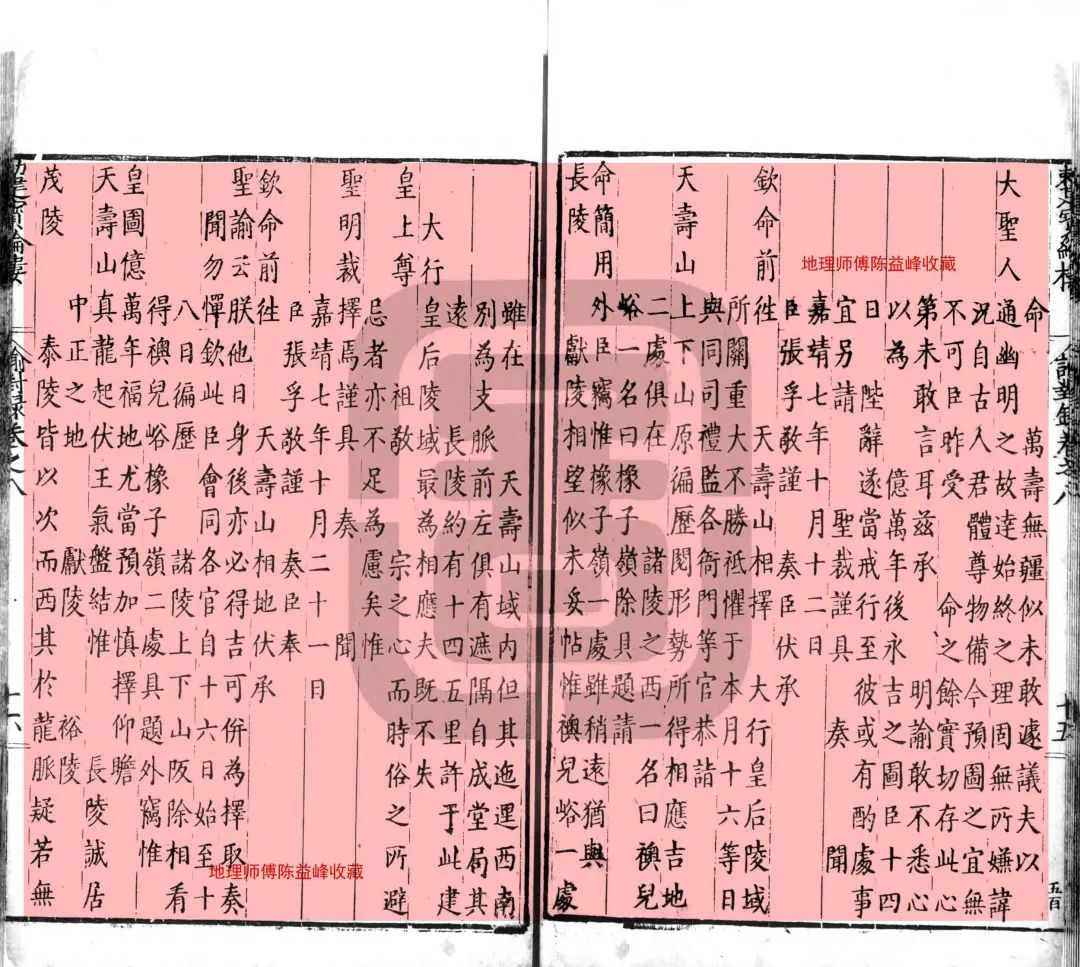 地理师傅陈益峰收藏
命 萬壽無疆似未敢遽議夫以
大聖人通幽明之故達始終之理固無所嫌諱
況自古人君體尊物備今預圖之宜無
不可臣昨受 命之餘實切存此心
第未敢言耳茲承 明諭敢不悉心
以為 億萬年後永吉之圖臣十四
日 陛辭遂當戒行至彼或有酌處事
宜另請 聖裁謹具 奏 聞
嘉靖七年十月十二日
臣張孚敬謹 奏臣伏承
欽命前徃 天壽山相擇 大行皇后陵域
所關重大不勝祗懼于本月十六等日
與同司禮監各衙門等官恭詣
天壽山上下山原徧歷閱形勢所得相應吉地
二處俱在 諸陵之西一名曰襖兒
峪一名曰橡子嶺除具題請
命簡用外臣竊惟橡子嶺一處雖稍遠猶與
長陵 獻陵相望似未妥帖惟襖兒峪一處
雖在 天壽山域內但其迤邐西南
別為支脈前左俱有遮隔自成堂局其
遠 長陵約有十四五里許于此建
大行皇后陵域最為相應夫既不失
皇上尊 祖敬 宗之心而時俗之所避
忌者亦不足為慮矣惟
聖明裁擇焉謹具 奏 聞
嘉靖七年十月二十一日
臣張孚敬謹 奏臣奉
欽命前徃 天壽山相地伏承
聖諭云朕他日身後亦必得吉可併為擇取奏
聞勿憚欽此臣會同各官自十六日始至十
八日徧歷 諸陵上下山阪除相看
得襖兒峪橡子嶺二處具題外竊惟
皇圖億萬年福地尤當預加慎擇仰瞻
天壽山真龍起伏王氣盤結惟 長陵誠居
中正之地 獻陵 裕陵
茂陵 泰陵皆以次而西其於龍脈疑若無
地理师傅陈益峰收藏